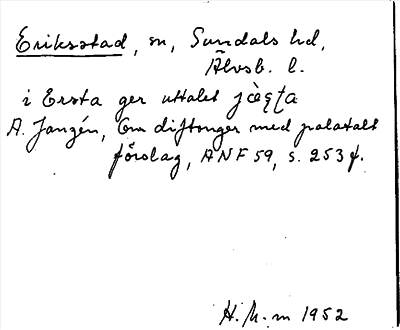 Eriksstad, sn, Sundals hd,
Älvsb. l.
i Ersta ger uttalet
A. Janzén, Om diftonger med palatalt
förslag, ANF 59, s. 253 f.
1952